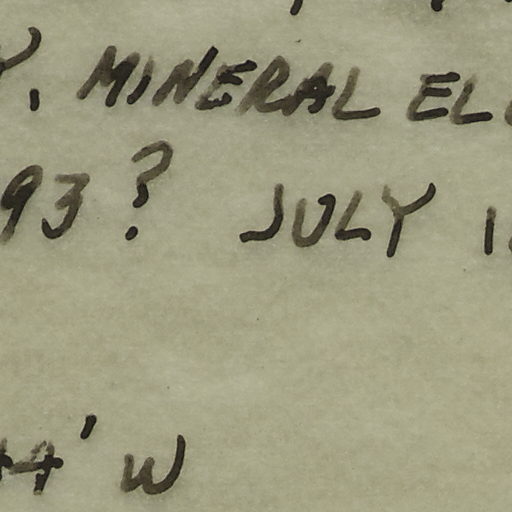 , MINERAL EL
93? JULY 1
44' W